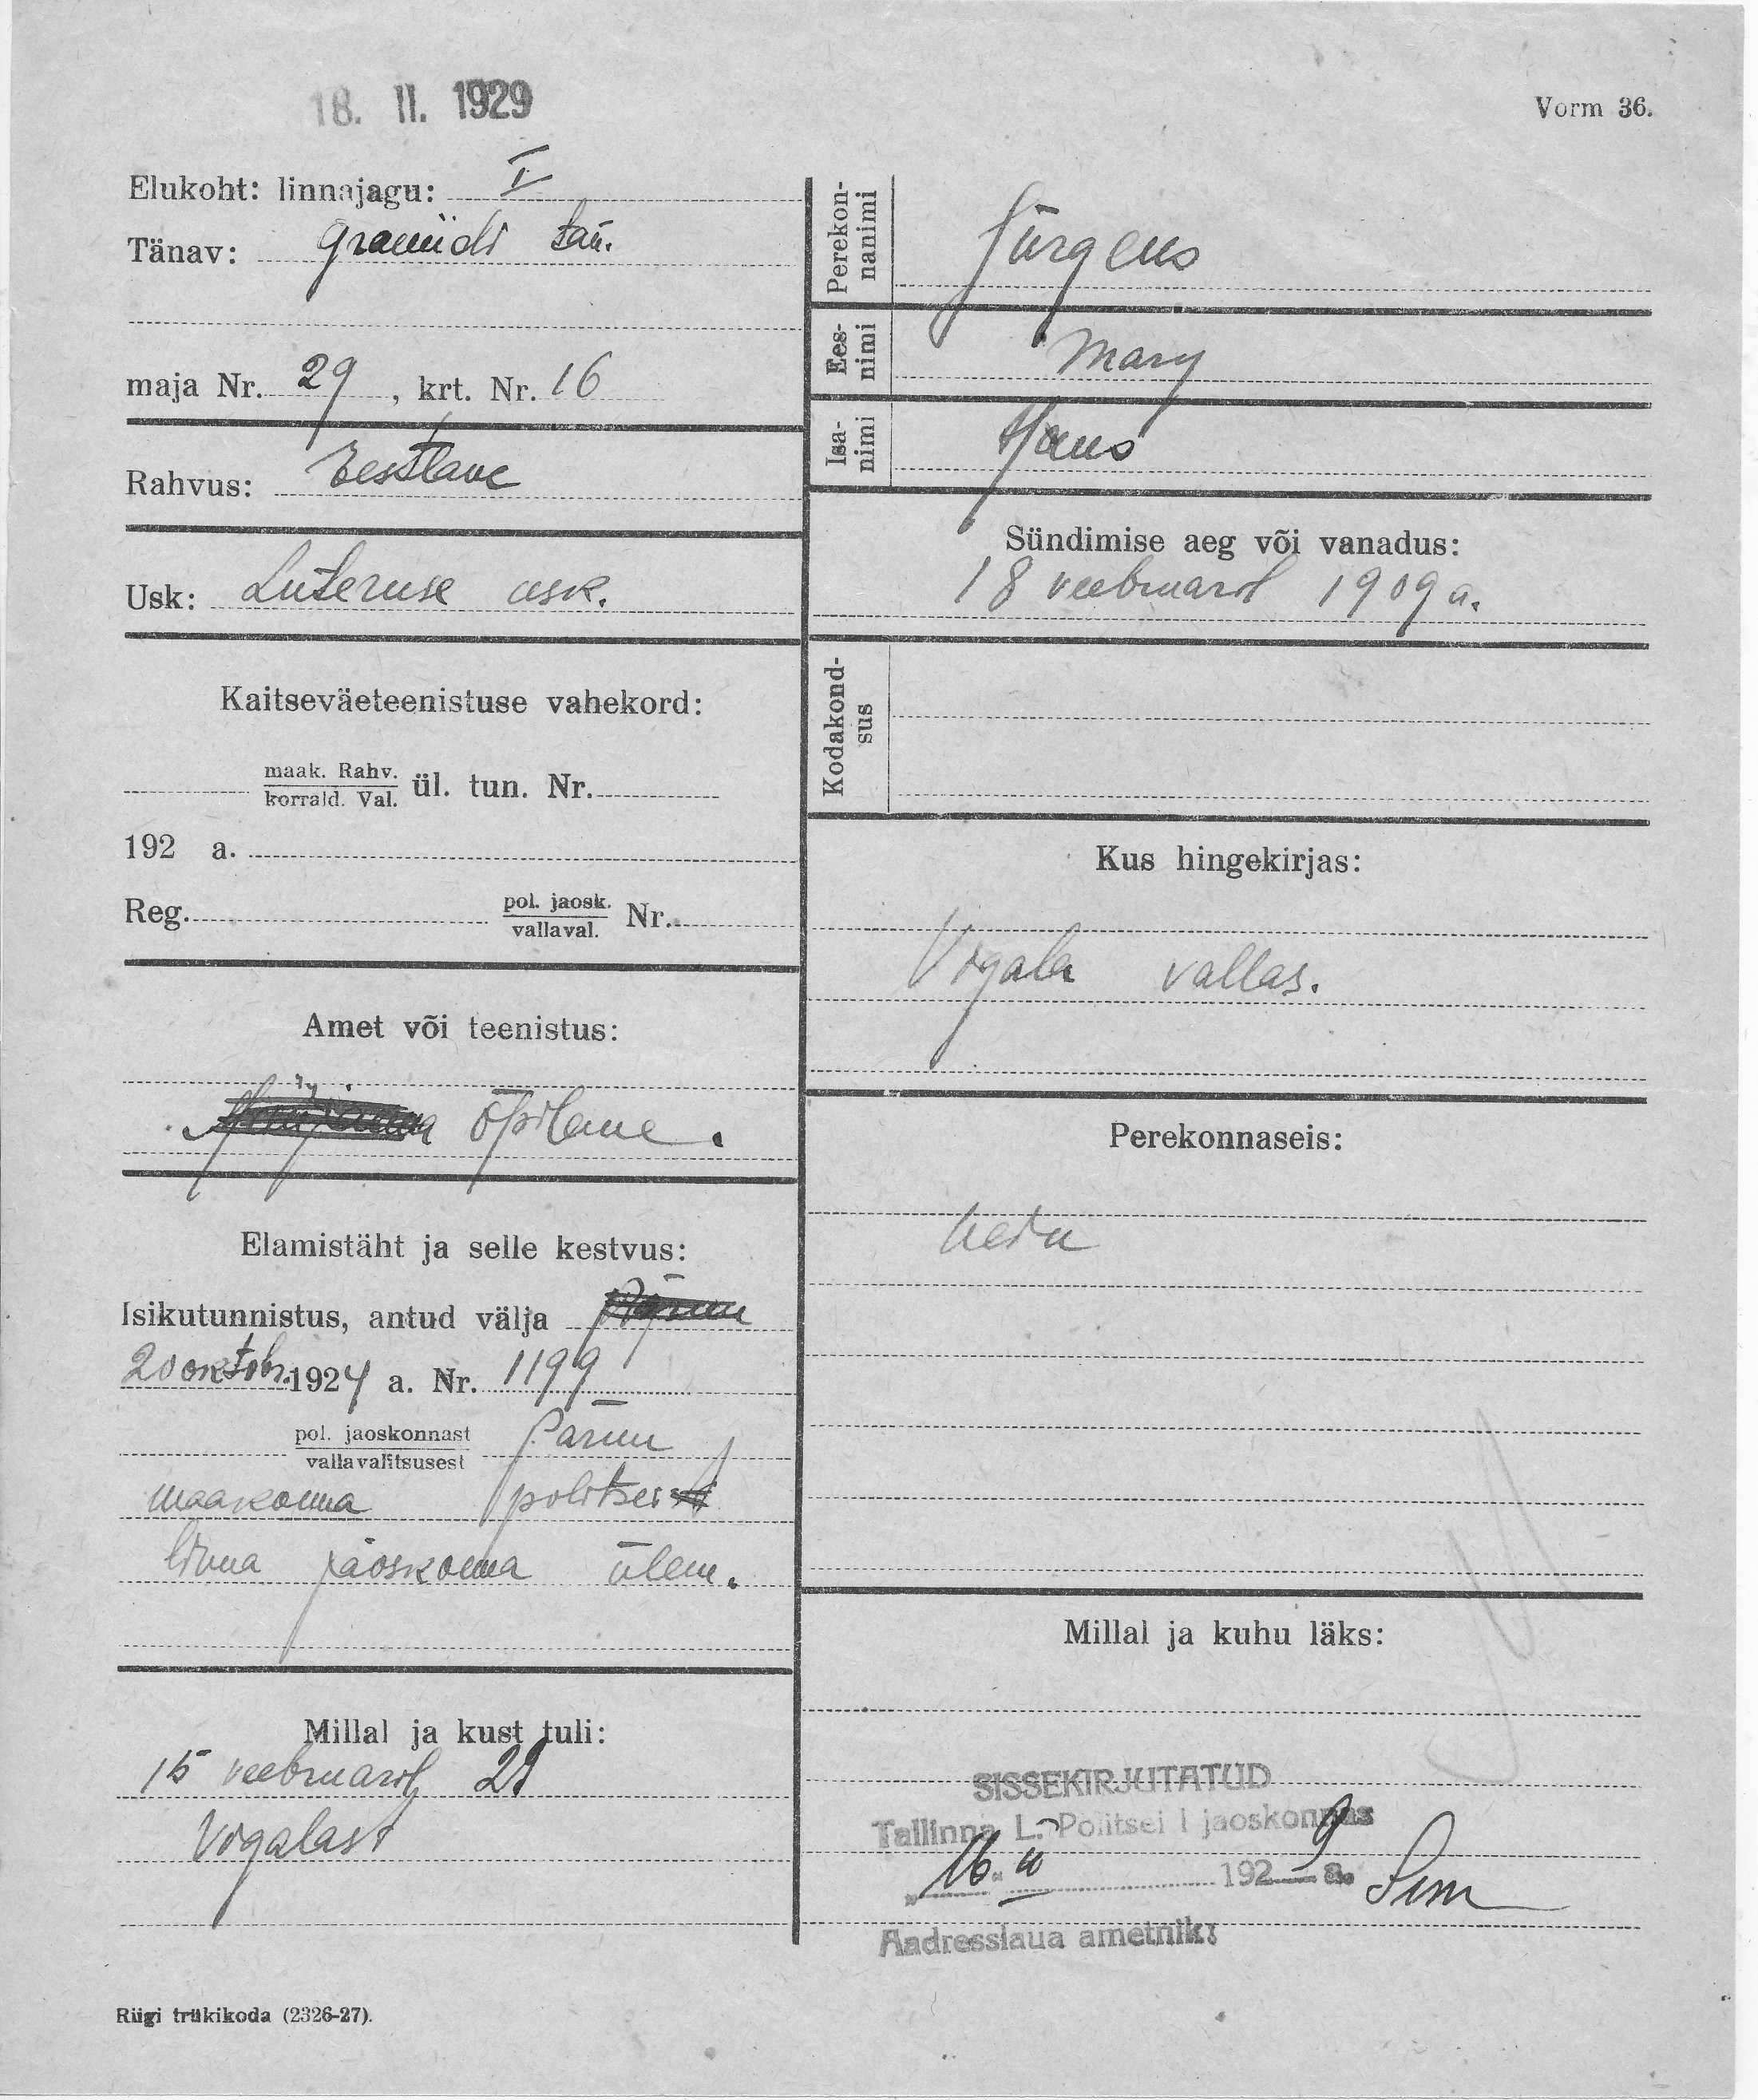 18. II. 1929
Vorm 36.
Elukoht: linnajagu: I
Tänav: Graniidi tän.
maja Nr. 29, krt. Nr. 16
Rahvus: Eestlane
Usk: Luteruse usk.
Kaitseväeteenistuse vahekord:
maak. Rahv.
korrald. Val. ül. tun. Nr.
192 a.
Reg. pol. jaosk.
vallaval. Nr.
Amet või teenistus:
õpilane.
Elamistäht ja selle kestvus:
Isikutunnistus, antud välja Pärnu
20 oktobr. 1924 a. Nr. 1199
pol. jaoskonnast
vallavalitsusest Pärnu
maakonna politsei
linna jaoskonna ülem.
Millal ja kust tuli:
15 veebruaril 29
Vigalast
Riigi trükikoda (2326-27).
Perekon-
nanimi Jürgens
Ees-
nimi Mary
Isa-
nimi Hans
Sündimise aeg või vanadus:
18 veebruaril 1909 a.
Kodakond-
sus
Kus hingekirjas:
Vigala vallas.
Perekonnaseis:
neiu
Millal ja kuhu läks:
SISSEKIRJUTATUD
Tallinna L. Politsei I jaoskonnas
"16." II 1929 a.
Aadresslaua ametnik: